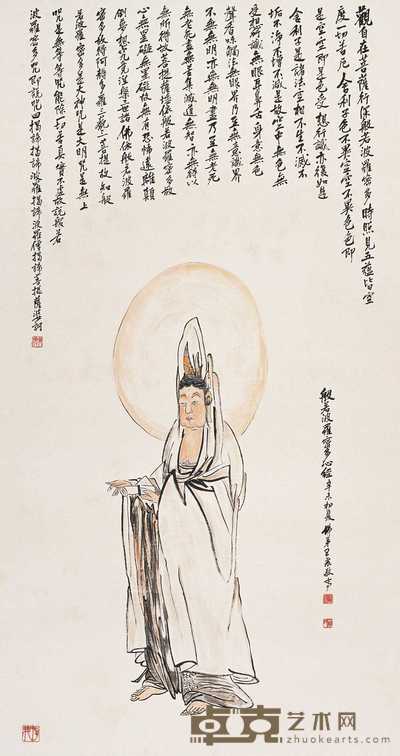 觀自在菩薩行深般若波羅蜜多時照見五蘊皆空
度一切苦厄舍利子色不異空空不異色色即
是空空即是色受想行識亦復如是
舍利子是諸法空相不生不滅不
垢不淨不增不減是故空中無色無
受想行識無眼耳鼻舌身意無色
聲香味觸法無眼界乃至無意識界
無無明亦無無明盡乃至無老死
無老死盡無苦集滅道無智亦無得以
無所得故菩提薩埵依般若波羅蜜多故
心無罣礙無罣礙故無有恐怖遠離顛
倒夢想究竟涅槃三世諸佛依般若波羅
蜜多故得阿耨多羅三藐三菩提故知般
若波羅蜜多是大神咒是大明咒是無上
咒是無等等咒能除一切苦真實不虛故說般若
波羅蜜多咒即說咒曰揭諦揭諦波羅揭諦波羅僧揭諦菩提薩婆訶
般若波羅蜜多心經辛未初夏佛弟王震敬
卓克艺术网
zhuokearts.com